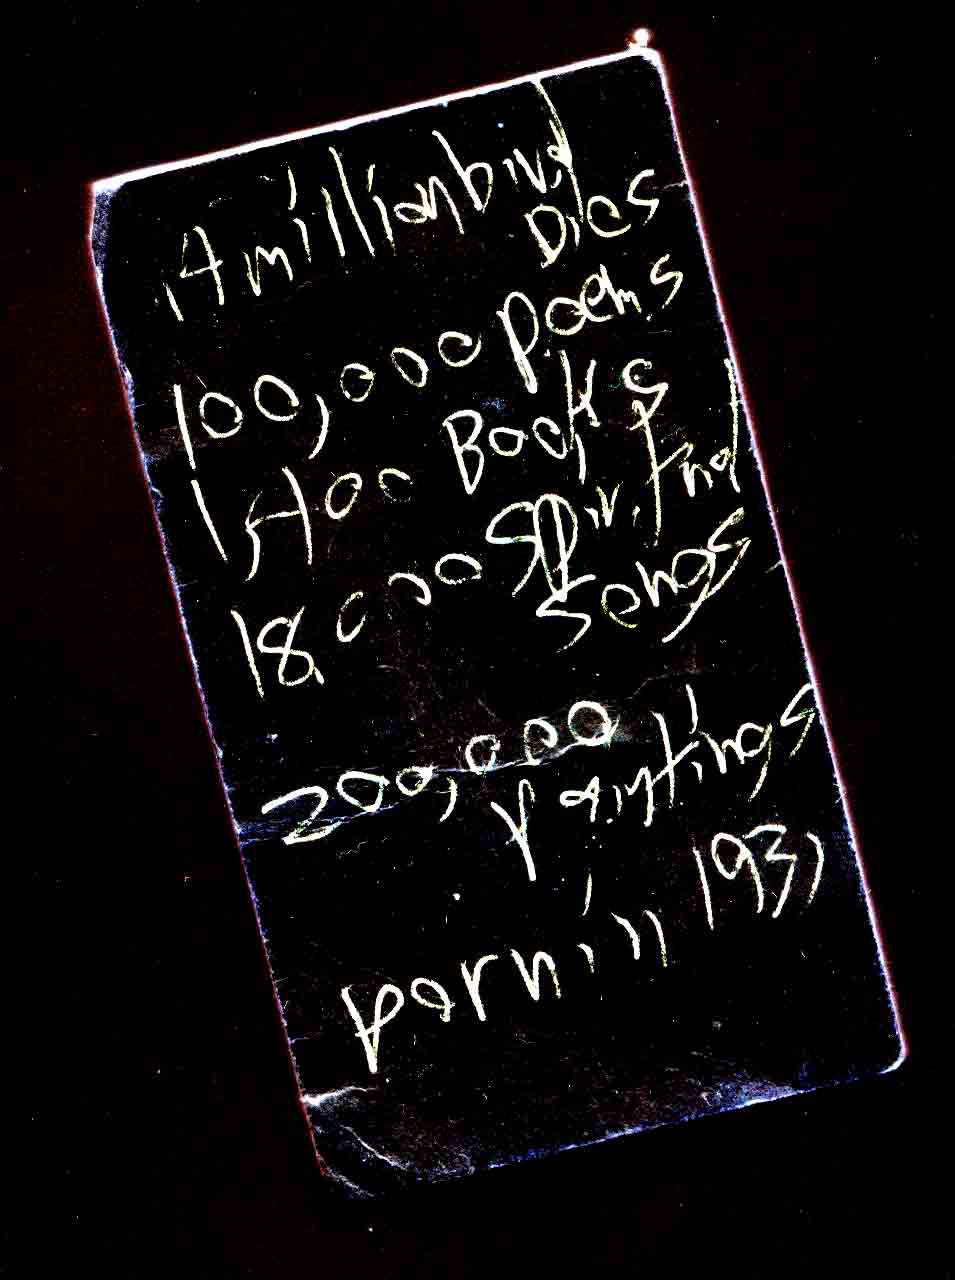 A million bird
Dies
100,000 Poems
1,400 Books
18,000 Spiritual
Songs
200,000
Paintings
1931